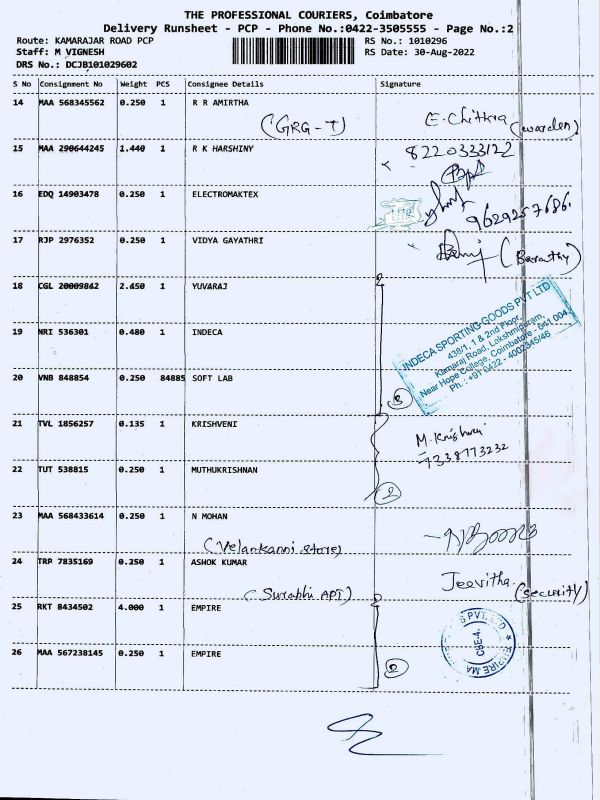 THE PROFESSIONAL COURIERS, Coimbatore
Delivery Runsheet - PCP - Phone No.:0422-3505555 - Page No.:2
Route: KAMARAJAR ROAD PCP RS No.: 1010296
Staff: M VIGNESH RS Date: 30-Aug-2022
DRS No.: DCJB101029602
S No Consignment No Weight PCS Consignee Details Signature
14 MAA 568345562 0.250 1 R R AMIRTHA
(GRG - T) E. Chithra (warden)
15 MAA 290644245 1.440 1 R K HARSHINY 8220333122
16 EDQ 14903478 0.250 1 ELECTROMAKTEX 9629257686
17 RJP 2976352 0.250 1 VIDYA GAYATHRI (Barathy)
18 CGL 20009842 2.450 1 YUVARAJ
19 NRI 536301 0.480 1 INDECA
INDECA SPORTING GOODS PVT LTD
438/1, 1 & 2nd Floor,
Kamaraj Road, Lakshmipuram,
Near Hope College, Coimbatore - 641 004.
Ph. : +91 0422 - 4002345/46
20 VNB 848854 0.250 84885 SOFT LAB 3
21 TVL 1856257 0.135 1 KRISHVENI M. Krishveni
7338773232
22 TUT 538815 0.250 1 MUTHUKRISHNAN 2
23 MAA 568433614 0.250 1 N MOHAN
(Velankanni store)
24 TRP 7835169 0.250 1 ASHOK KUMAR Jeevitha (security)
(Surabhi APT)
25 RKT 8434502 4.000 1 EMPIRE
PVT. LTD EMPIRE MA CBE-4.
26 MAA 567238145 0.250 1 EMPIRE